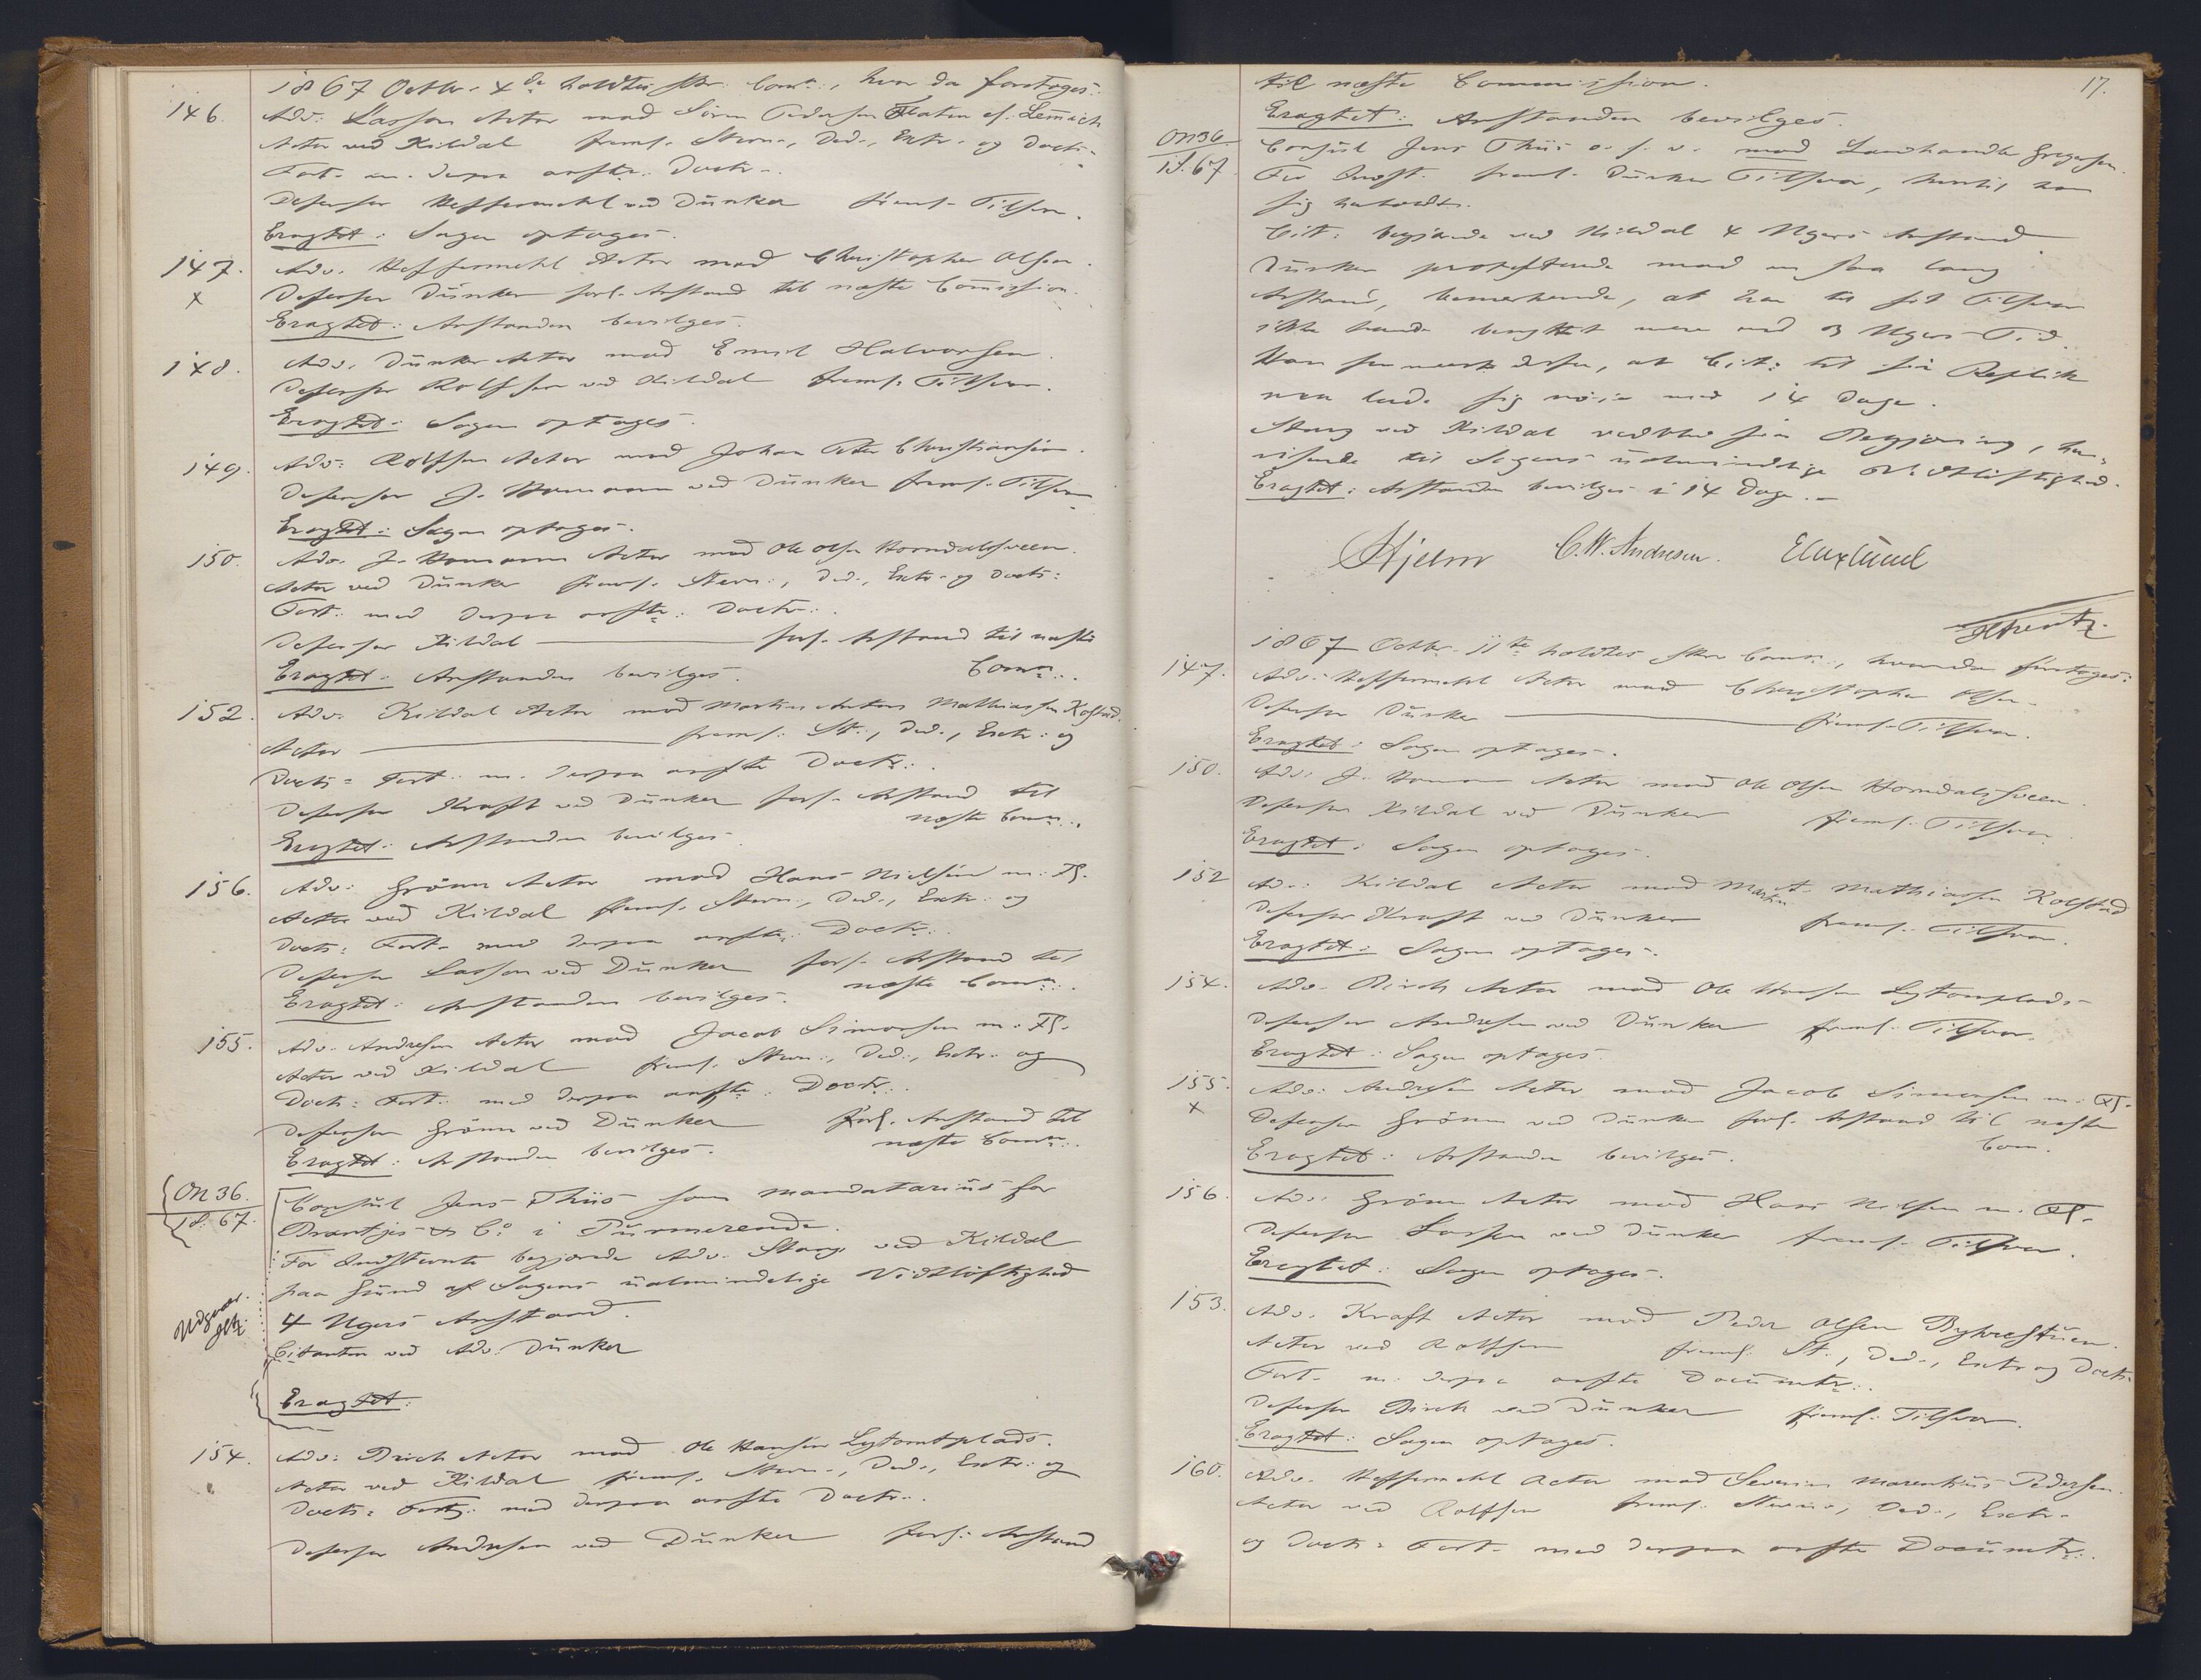 1867 Octbr. 4de holdtes Skr. Comn., hvor da foretoges:
146. Adv. Lasson Actor mod Sören Pedersen Flaten el. Lemmich
Actor ved Kildal freml. Stevn., Ded., Extr. og Docts.
Fort. m. derpaa anfte. Doctr.
Defensor Heffermehl ved Dünker freml. Tilsvar.
Eragtet: Sagen optages.
147. Adv. Heffermehl Actor mod Christopher Olsen.
x Defensor Dünker forl. Anstand til næste Comission.
Eragtet: Anstanden bevilges.
148. Adv. Dünker Actor mod Emil Halvorsen.
Defensor Rolfsen ved Kildal freml. Tilsvar.
Eragtet: Sagen optages.
149. Adv. Rolfsen Actor mod Johan Peter Christiansen.
Defensor J. Homann ved Dünker freml. Tilsvar
Eragtet: Sagen optages.
150. Adv. J. Homann Actor mod Ole Olsen Horndalsveen.
Actor ved Dünker freml. Stevn., Ded., Extr. og Docts:
Fort. med derpaa anfte. Doctr.
Defensor Kildal — forl. Anstand til næste
Eragtet: Anstanden bevilges. Comn.
152. Adv. Kildal Actor mod Martin Anton Mathiassen Kolstad.
Actor — freml. St., Ded., Extr. og
Docts: Fort. m. derpaa anfte Doctr.
Defensor Kraft ved Dünker forl. Anstand til
næste Comn.
Eragtet: Anstanden bevilges.
156. Adv. Grönn Actor mod Hans Nielsen m. Fl.
Actor ved Kildal freml. Stevn., Ded., Extr. og
Docts: Fort. med derpaa anfte. Doctr.
Defensor Lasson ved Dünker forl. Anstand til
Eragtet: Anstanden bevilges. næste Comn.
155. Adv. Andresen Actor mod Jacob Simonsen m. Fl.
Actor ved Kildal freml. Stevn., Ded., Extr. og
Docts: Fort. med derpaa anfte. Doctr.
Defensor Grönn ved Dünker forl. Anstand til
Eragtet: Anstanden bevilges. næste Comn.
ON 36. Consul Jens Thiis som Mandatarius for
18.67. Brantjes & Co i Purmerende.
For Indstevnte begjærede Adv. Stang ved Kildal
paa Grund af Sagens ualmindelige Vidtlöftighed
4 Ugers Anstand.
Udgaaer.
Citanten ved Adv. Dünker
Eragtet:
154. Adv. Birch Actor mod Ole Hansen Lytomtplads.
Actor ved Kildal freml. Stevn., Ded., Extr. og
Docts: Fort. med derpaa anfte Doctr.
Defensor Andresen ved Dünker forl. Anstand
17.
til næste Commission.
Eragtet: Anstanden bevilges.
ON 36 Consul Jens Thiis o. s. v. mod Landhandler Gregersen.
18.67. For Indst. freml. Dünker Tilsvar, hvortil han
sig henholdt.
Cit. begjærede ved Kildal 4 Ugers Anstand
Dünker protesterede mod en saa lang
Anstand, bemærkende, at han til sit Tilsvar
ikke havde benyttet mere end 3 Ugers Tid.
Han formente derfor, at Cit. til sin Replik
maa lade sig nöie med 14 Dage.
Stang ved Kildal vedblev sin Begjæring, hen-
visende til Sagens ualmindelige Vidtlöftighed.
Eragtet: Anstanden bevilges i 14 Dage.
Hjelm C. W. Andresen.
1867 Octbr. 11te holdtes Skr. Comn., hvorda foretoges:
147. Adv. Heffermehl Actor mod Christopher Olsen.
Defensor Dünker — freml. Tilsvar.
Eragtet: Sagen optages.
150. Adv. J. Homann Actor mod Ole Olsen Horndalsveen.
Defensor Kildal ved Dünker freml. Tilsvar
Eragtet: Sagen optages.
152 Adv. Kildal Actor mod Martin A. Mathiassen Kolstad
Defensor Kraft ved Dünker freml. Tilsvar.
Eragtet: Sagen optages.
154. Adv. Birch Actor mod Ole Hansen Lytomtplads.
Defensor Andresen ved Dünker freml. Tilsvar.
Eragtet: Sagen optages.
155. Adv. Andresen Actor mod Jacob Simonsen m. Fl.
x Defensor Grönn ved Dünker forl. Anstand til næste
Eragtet: Anstanden bevilges. Com.
156. Adv. Grönn Actor mod Hans Nilsen m. Fl.
Defensor Lasson ved Dünker freml. Tilsvar.
Eragtet: Sagen optages.
153. Adv. Kraft Actor mod Peder Olsen
Actor ved Rolfsen freml. St., Ded., Extr og Docts
Fort. m. derpaa anfte Documtr.
Defensor Birch ved Dünker freml. Tilsvar.
Eragtet: Sagen optages.
160. Adv. Heffermehl Actor mod Severin Marentius Pedersen.
Actor ved Rolfsen freml. Stevn., Ded., Extr.
og Docts: Fort. med derpaa anfte Documtr.